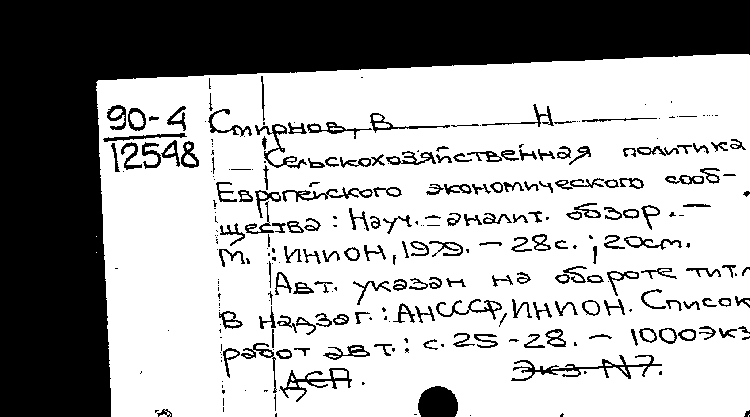 90-4 Смирнов, В Н
12548 Сельскохозяйственная политика
Европейского экономического сооб-
щества : Науч.-аналит. обзор. -
М. : ИНИОН, 1979. - 28с. ; 20см.
Авт. указан на обороте тит.л
В надзаг. : АН СССР, ИНИОН. Список
работ авт. : с. 25-28. - 1000экз
ДСП. Экз. N7.